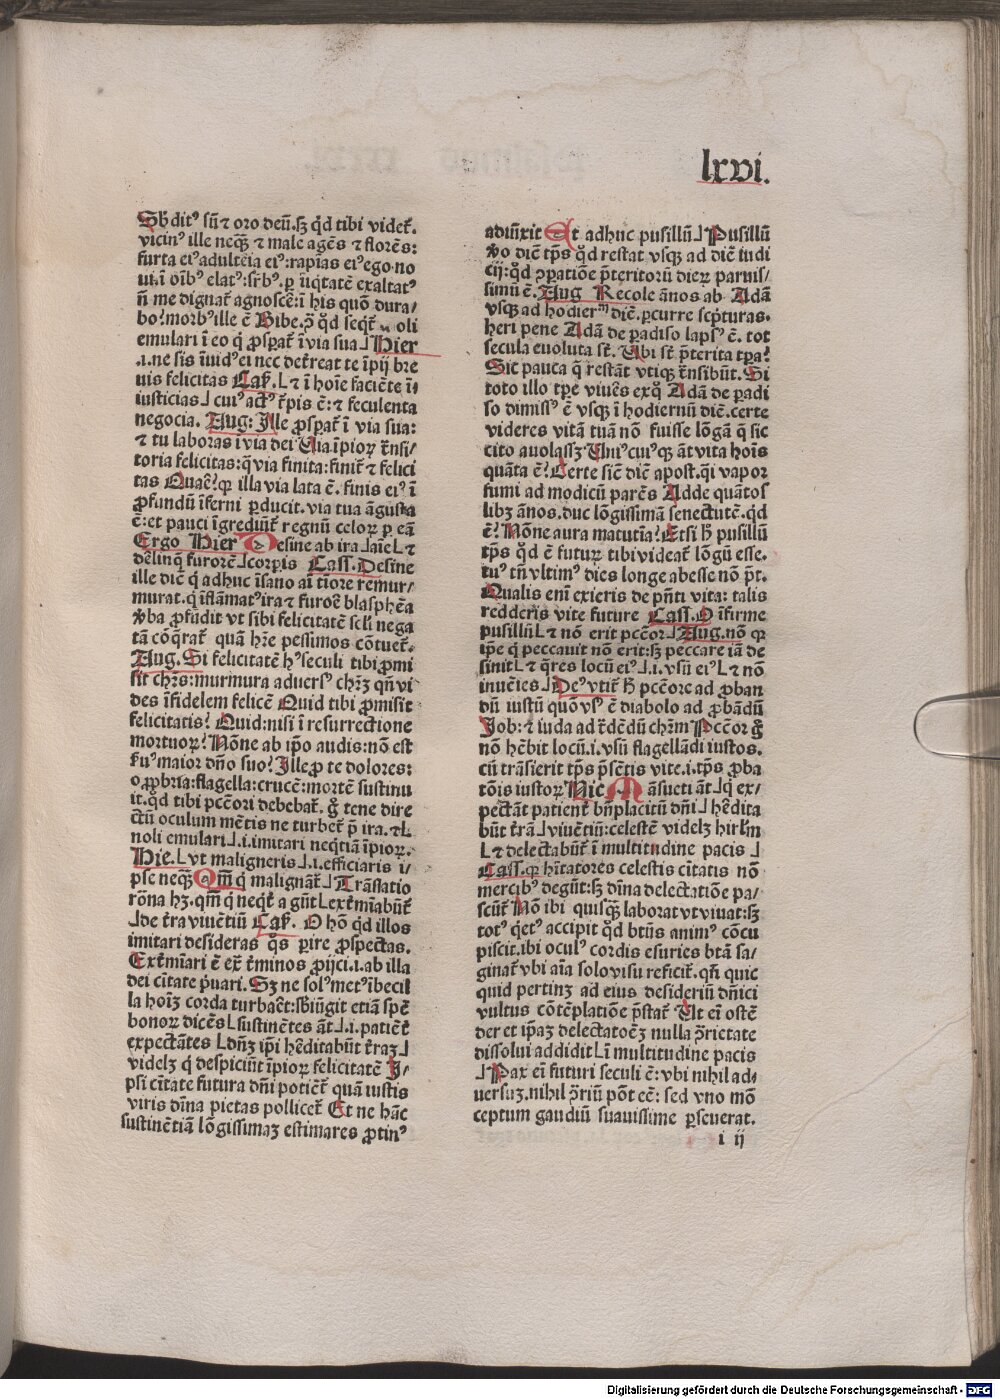 lxvi.
Sƀditꝰ sū ⁊ oro deū.sꝫ qd̄ tibi videt᷑.
vicinꝰ ille neqͣꝫ ⁊ male agēs ⁊ florēs:
furta eiꝰ adulteīa eiꝰ:rapīas eiꝰ ego no
emulari ī eo q ꝓsꝑat᷑ ī via sua⅃ Hier
.i.ne sis īuidꝰ ei nec det̄reat te īpij bre
uis felicitas Cas̄.L ⁊ ī hoīe faciēte ī
iusticias⅃ cuiꝰ actꝰ t̄pis ē: ⁊ feculenta
negocia. Aug: Ille ꝓsꝑat᷑ ī via sua:
⁊ tu laboras ī via dei
toria felicitas:q̄ via finita:finit᷑ ⁊ felici
tas Quaē?qꝛ illa via lata ē. finis eiꝰ ī
ꝓfundū īferni ꝑducit.via tua āgusta
ē:et pauci īgrediūt᷑ regnū celoꝝ ꝑ eā
Ergo Hier Desine ab ira⅃aīeL ⁊
dēlinq̄ furorē⅃corꝑis Cass.Desine
ille diē q̄ adhuc īsano aī tīore remur/
murat.q īflāmatꝰ ira ⁊ furoē blasphēa
ꝟba ꝓfūdit vt sibi felicitatē scl̄i nega
tā cōq̄rat᷑ quā hr̄e pessimos cōtuet᷑.
Aug. Si felicitatē hꝰ seculi tibi ꝓmi
sit chr̄s:murmura aduersꝰ chr̄ꝫ qn̄ vi
des īfidelem felicē Quid tibi ꝓmisit
felicitatis? Quid:nisi ī resurrectione
mortuoꝝ? Nōne ab ip̄o audis:nō est
ẜuꝰ maior dn̄o suo? Ille ꝓ te dolores:
oꝓbria:flagella:crucē:mortē sustinu
it.qd̄ tibi pcc̄ori debebat᷑. g̊ tene dire
ctū oculum mētis ne turbet᷑ p̄ ira.⁊L
noli emulari⅃.i.imitari neq̄tiā īpioꝝ.
Hie.L vt maligneris⅃.i.efficiaris i/
pse neqͣꝫ Qm̄ q malignāt᷑⅃ Trāslatio
rōna hꝫ.qm̄ q neqt᷑ a gūt L ext̄mīabūt᷑
⅃de t̄ra viuentiū Cas̄. O hō qd̄ illos
imitari desideras qͦs ꝑire ꝓspectas.
Ext̄mīari ē ex t̄minos ꝓijci.i.ab illa
dei cītate p̄uari.Sꝫ ne solꝰ metꝰ ībecil
la hoīꝫ corda turbaēt:sƀiūgit etiā spē
bonoꝝ dicēs L sustinētes āt⅃.i.patiēt᷑
expectātes L dn̄ꝫ ip̄i hēditabūt t̄raꝫ⅃
videlꝫ q despiciūt īpioꝝ felicitatē I/
psi cītate futura dn̄i potiēt᷑ quā iustis
viris dīna pietas pollicet᷑ Et ne hāc
sustinētiā lōgissimaꝫ estimares ꝓtinꝰ
adiūxit Et adhuc pusillū⅃ Pusillū
ꝟo diē tp̄s qd̄ restat vsqꝫ ad diē iudi
cij:qd̄ ꝯꝑatiōe p̄teritorū dieꝝ paruis/
simū ē. Aug Recole ānos ab Adā
vsqꝫ ad hodierͫ diē.ꝑcurre scp̄turas.
heri pene Adā de ꝑadiso lapsꝰ ē. tot
secula euoluta st̄. Ubi st̄ p̄terita tp̄a?
Sic pauca q̄ restāt vtiqꝫ t̄nsibūt. Si
toto illo tp̄e viuēs exq̊ Adā de ꝑadi
so dimissꝰ ē vsqꝫ ī hodiernū diē.certe
videres vitā tuā nō fuisse lōgā q̄ sic
cito auolassꝫ Uniꝰcuiꝰqꝫ āt vita hoīs
quāta ē? Certe sic̄ diē apost.qi vapor
fumi ad modicū parēs Adde quātos
libꝫ ānos.duc lōgissimā senectutē.qd̄
ē? Nōne aura matutia? Etsi hͦ pusillū
tp̄s qd̄ ē futuꝝ tibi videat᷑ lōgū esse.
tuꝰ tn̄ vltimꝰ dies longe abesse nō p̄t.
Qualis enī exieris de p̄nti vita: talis
redderis vite future Cass. O īfirme
pusillū L ⁊ nō erit pcc̄or⅃ Aug.nō qꝛ
ip̄e q peccauit nō erit:sꝫ peccare iā de
sinit L ⁊ q̄res locū eiꝰ⅃.i.vsū eiꝰ L ⁊ nō
inuēies⅃ Deꝰ vtit᷑ hͦ pcc̄ore ad ꝓban
dū iustū quōvsꝰ ē diabolo ad ꝓbādū
Job: ⁊ iuda ad t̄dēdū chr̄m Pcc̄or g̊
nō hēbit locū.i.vsū flagellādi iustos.
cū trāsierit tp̄s p̄sētis vite.i.tp̄s ꝓba
tōis iustoꝝ Hie. Māsueti āt⅃q ex/
pectāt patient᷑ bn̄placitū dn̄i⅃ hēdita
būt t̄rā⅃viuētiū:celestē videlꝫ hirlm̄
L ⁊ delectabūt᷑ ī multitudine pacis⅃
Cass.qꝛ hītatores celestis cītatis nō
mercibꝰ degūt:sꝫ dīna delectatiōe pa/
scūt᷑ Nō ibi quisqͣꝫ laborat vt viuat:sꝫ
totꝰ q̄etꝰ accipit qd̄ btūs animꝰ cōcu
piscit.ibi oculꝰ cordis esuries btā sa/
ginat᷑ vbi aīa solo visu reficit᷑. qn̄ quic
quid pertinꝫ ad eius desideriū dn̄ici
vultus cōtēplatiōe p̄stat᷑ Ut eī ostē
der et ip̄aꝫ delectatoēꝫ nulla ꝓrietate
dissolui addidit L ī multitudine pacis
⅃ Pax eī futuri seculi ē: vbi nihil ad/
uersuꝫ.nihil ꝓ̄riū pōt eē: sed vno mō
ceptum gaudiū suauissime ꝑseuerat.
i ij
Digitalisierung gefördert durch die Deutsche Forschungsgemeinschaft - DFG